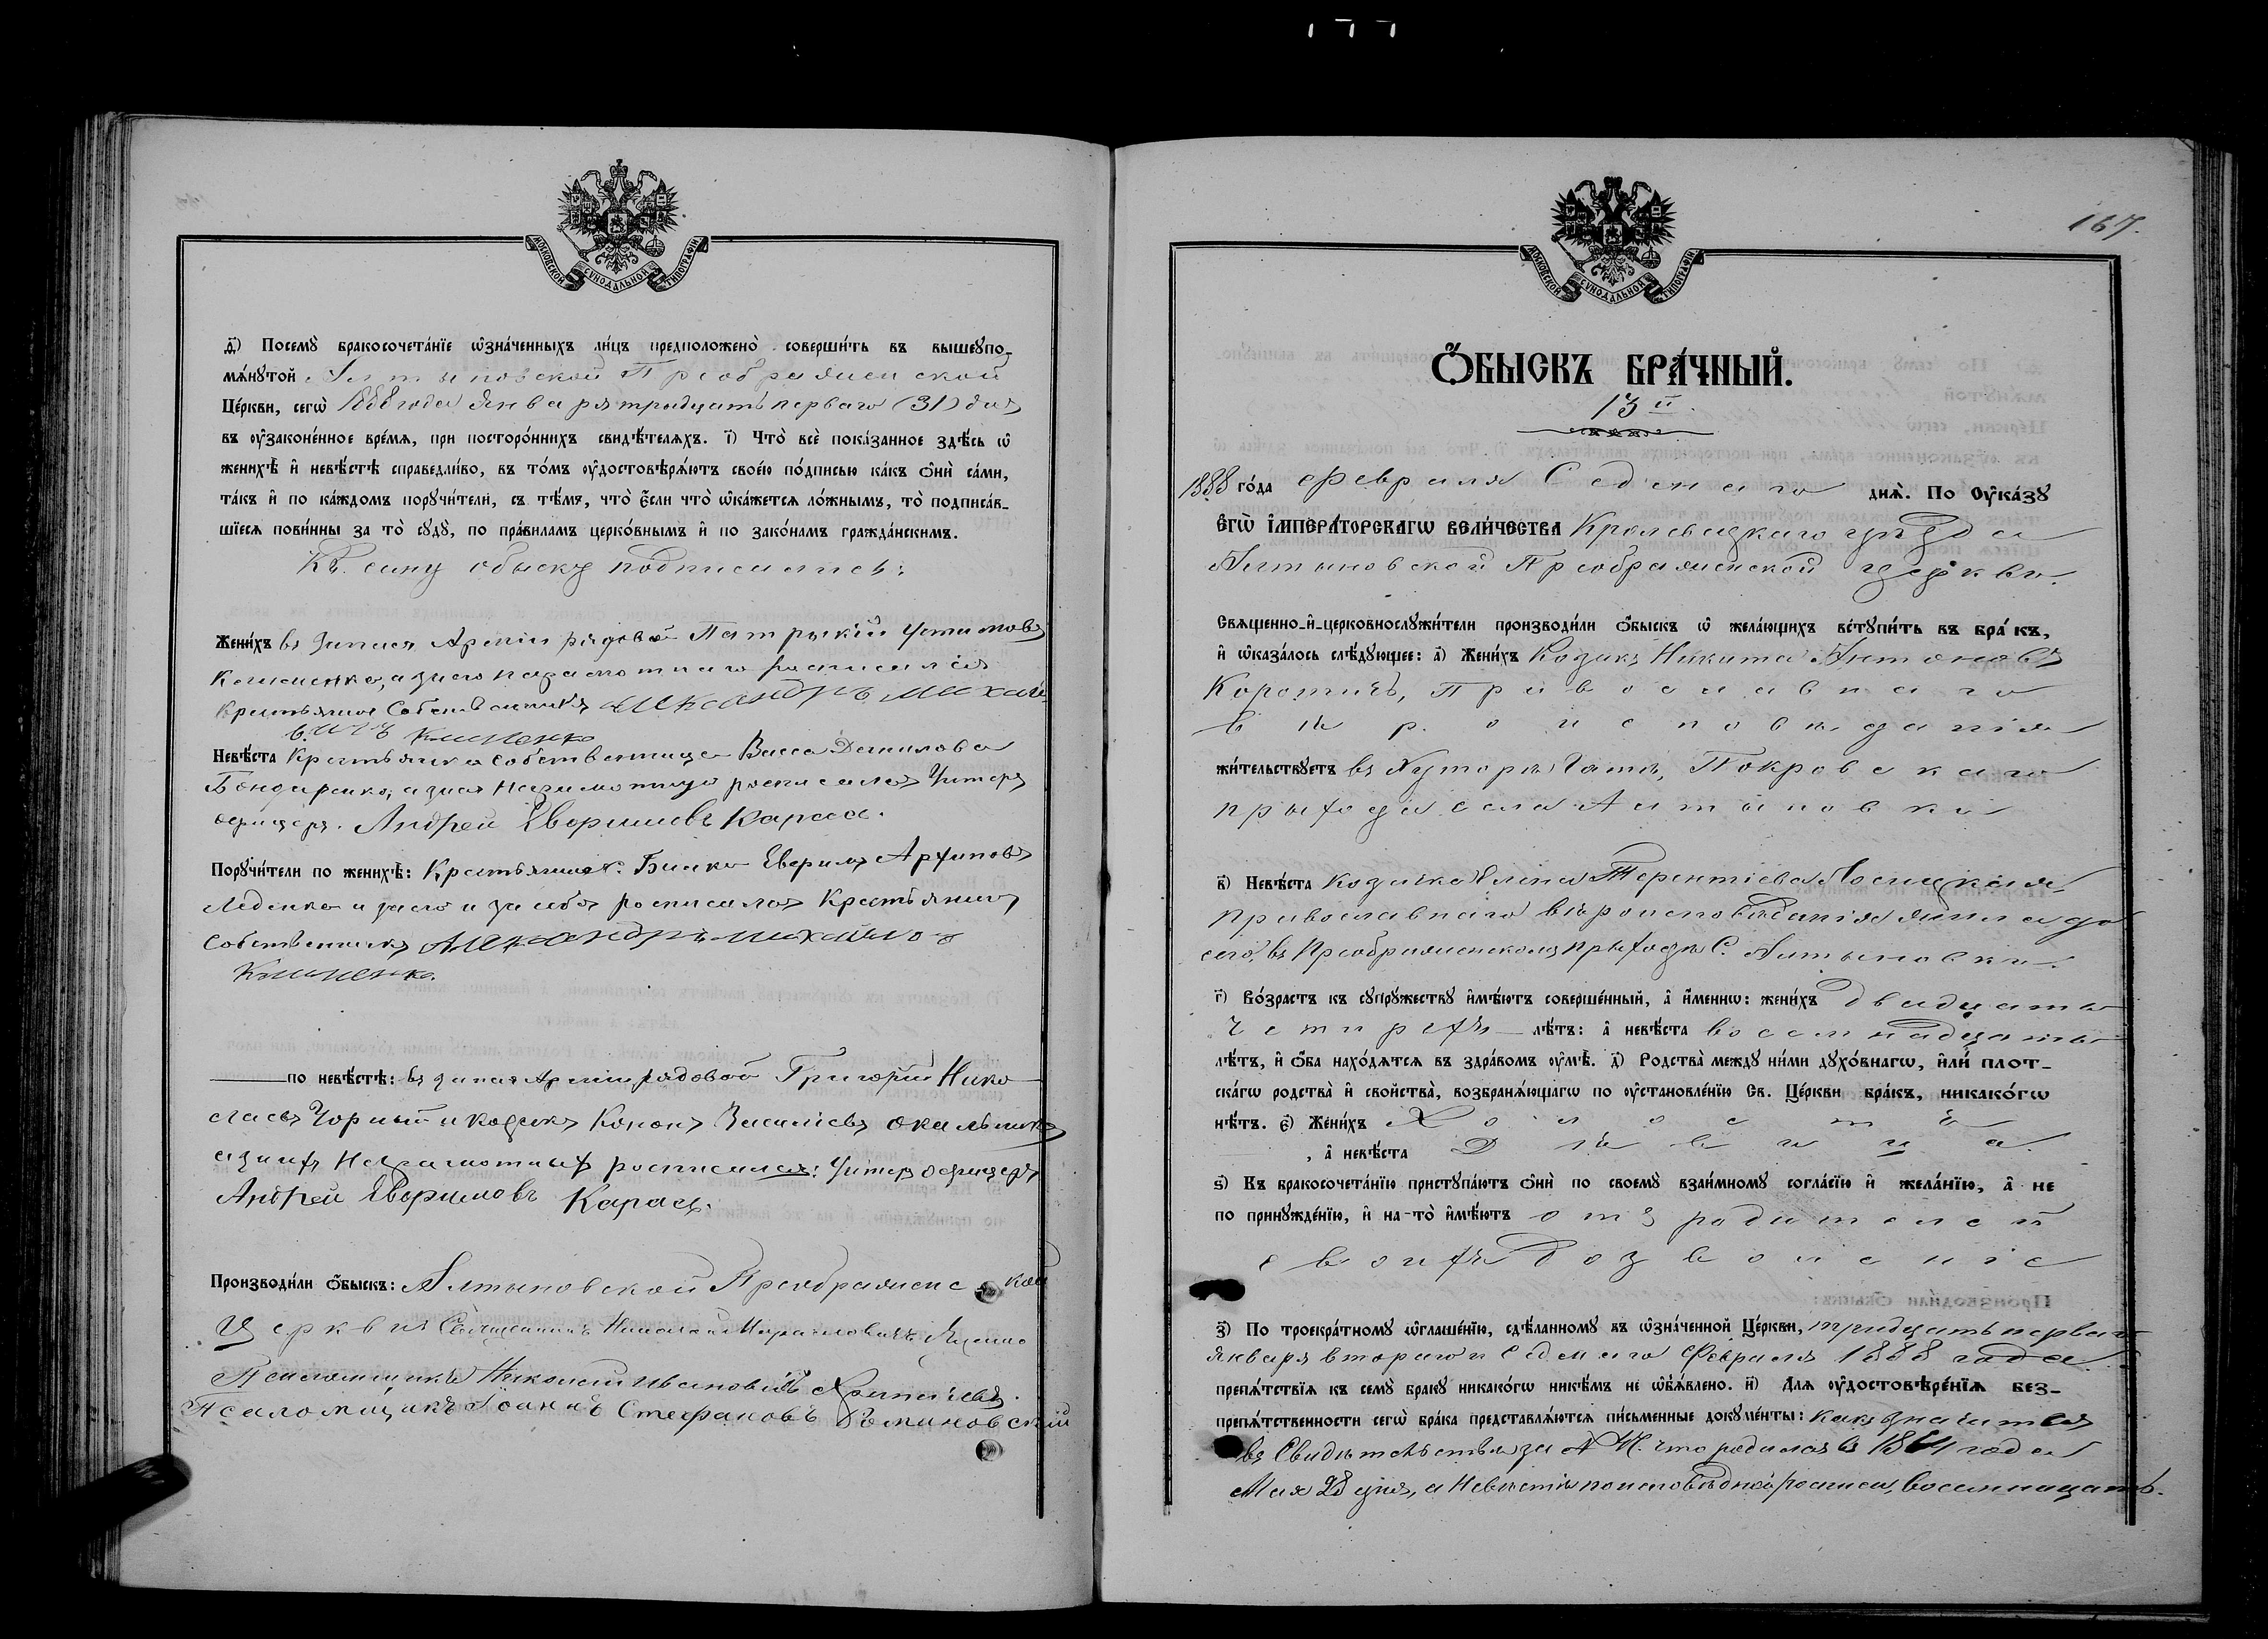 МОСКОВСКОЙ СУНОДАЛЬНОЙ ТИПОГРАФІИ
д҃і) Посемꙋ̀ бракосочета́нїе ѡ҆зна́ченныхъ ли́цъ предположено̀ соверши́ть въ вышеꙋпо-
мѧ́нꙋтой Алтыновской Преображенской
Це́ркви, сегѡ̀ 1888 года Января тридцать перваго (31) дня
въ ᲂу҆законе́нное вре́мѧ, при посторо́ннихъ свидѣ́телѧхъ. і҃) Что̀ всѐ пока́занное здѣ́сь ѡ҆
женихѣ̀ и҆ невѣ́стѣ справедли́во, въ то́мъ ᲂу҆достовѣрѧ́ютъ свое́ю по́дписью ка́къ ѻ҆нѝ са́ми,
та́къ и҆ по ка́ждомъ порꙋчи́тели, съ тѣ́мъ, что̀ є҆́сли что̀ ѡ҆ка́жетсѧ ло́жнымъ, то̀ подписа́в-
шїесѧ пови́нны за то̀ сꙋдꙋ̀, по пра́виламъ церко́внымъ и҆ по зако́намъ гражда́нскимъ.
Къ сему обыску подписались:
Жени́хъ въ запасѣ Арміи рядовой Патрикій Устимовъ
Клименко, а за него неграмотнаго росписался
Крестьянинъ Собственникъ Александръ Михай
вичъ Клименко
Невѣ́ста Крестьянка собственница Васса Данилова
Бондаренко, а за нея Неграмотную росписался Унтеръ
офицеръ. Андрей Евфимовъ Карась.
Порꙋчи́тели по женихѣ̀: Крестьяне С. Билка Евфимъ Архиповъ
Леденко и за него и за себя росписался Крестьянинъ
Собственникъ Александръ Михайловъ
Клименко.
по невѣ́стѣ: въ запасѣ Арміи рядовой Григорій Нико
лаевъ Чорный и козакъ Кононъ Василіевъ
а за нихъ Неграмотныхъ росписался: Унтеръ офицеръ
Андрей Евфимовъ Карась.
Производи́ли ѻ҆́быскъ: Алтыновской Преображенской
Церкви Священникъ Николай
Псаломщикъ Николай Ивановичъ
Псаломщикъ Іоаннъ Стефановъ
167.
МОСКОВСКОЙ СУНОДАЛЬНОЙ ТИПОГРАФІИ
Ѻ҆́БЫСКЪ БРА́ЧНЫЙ.
13й.
1888 го́да Февраля Седьмаго днѧ̀. По Оу҆ка́зꙋ
Є҆гѡ̀ И҆мпера́торскагѡ Вели́чества Кролевецкаго уѣзда
Алтыновской Преображенской церкви
Свѧщенно-и҆-церковнослꙋжи́тели производи́ли ѻ҆́быскъ ѡ҆ жела́ющихъ встꙋпи́ть въ бра́къ,
и҆ ѡ҆каза́лось слѣ́дꙋющее: а҃) Жени́хъ Козакъ Никита Антоновъ
Коротичъ, Православнаго
вѣроисповѣданія
жи́тельствꙋетъ въ Хуторѣ Гати, Покровскаго
прихода села Алтыновки
в҃) Невѣ́ста козачка Елена Терентіева
Православнаго вѣроисповѣданія жила до
сего, въ Преображенскомъ приходѣ С. Алтыновки.
г҃) Во́зрастъ къ сꙋпрꙋ́жествꙋ и҆мѣ́ютъ соверше́нный, а҆ и҆́меннѡ: жени́хъ двадцать
четырехъ лѣ́тъ: а҆ невѣ́ста восемнадцать
лѣ́тъ, и҆ ѻ҆́ба нахо́дѧтсѧ въ здра́вомъ ᲂу҆мѣ̀. д҃) Родства̀ междꙋ ни́ми дꙋхо́внагѡ, и҆лѝ плот-
ска́гѡ родства̀ и҆ свойства̀, возбранѧ́ющагѡ по ᲂу҆становле́нїю Св. Це́ркви бра́къ, никако́гѡ
нѣ́тъ. є҃) Жени́хъ Холостъ
, а҆ невѣ́ста Дѣвица.
ѕ҃) Къ бракосочета́нїю пристꙋпа́ютъ ѻ҆нѝ по своемꙋ̀ взаи́мномꙋ согла́сїю и҆ жела́нїю, а҆ не
по принꙋжде́нїю, и҆ на-то̀ и҆мѣ́ютъ отъ родителей
своихъ дозволеніе
з҃) По троекра́тномꙋ ѡ҆глаше́нїю, сдѣ́ланномꙋ въ ѡ҆зна́ченной Це́ркви, тридцать перваго
Января втораго и Седьмаго Февраля 1888 года
препѧ́тствїѧ къ семꙋ̀ бракꙋ никако́гѡ никѣ́мъ не ѡ҆б̾ѧ́влено. и҃) Длѧ ᲂу҆достовѣре́нїѧ без-
препѧ́тственности сегѡ̀ бра́ка представлѧ́ютсѧ пи́сьменные докꙋме́нты: какъ значится
въ Свидѣтельствѣ за № что родился въ 1864 года
Мая 28 дня, а Невѣстѣ по исповѣдной росписи, восемнацать.